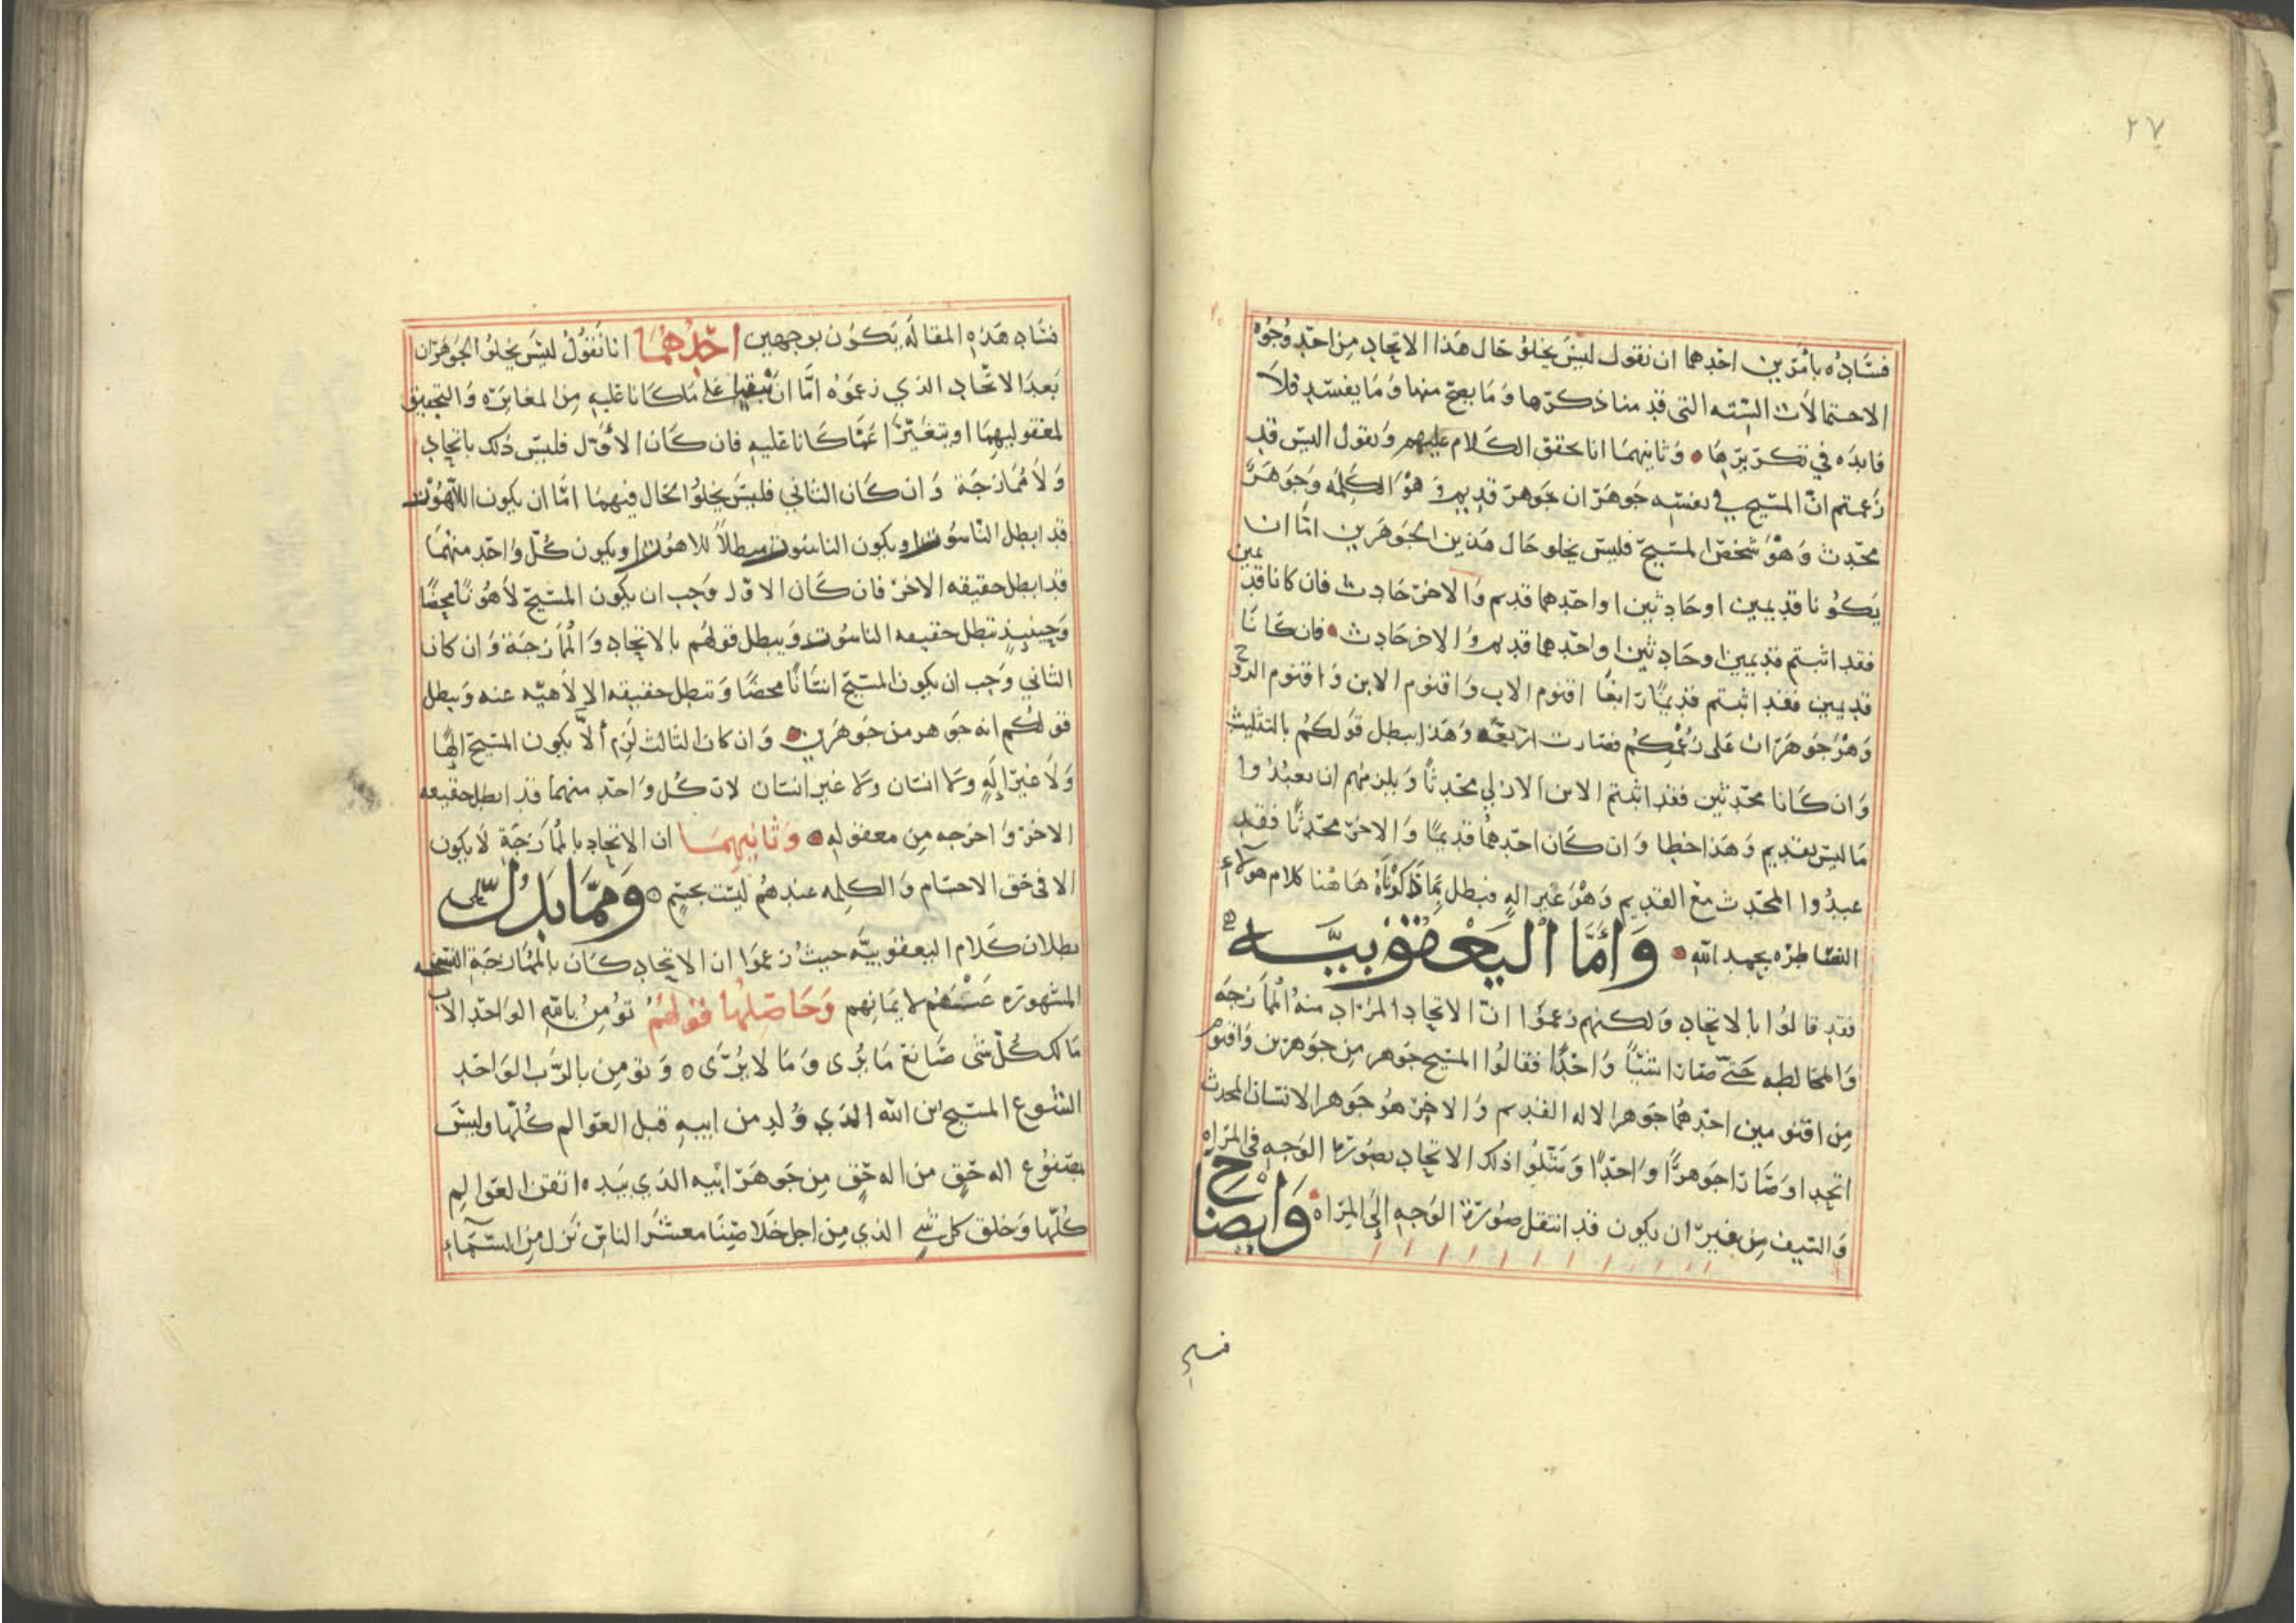 ٢٧
فساده بأمرين احدهما ان نقول ليس يخلو حال هذا الاتحاد من احد وجوه
الاحتمالات الستة التى قد منا ذكرها وما يصح منها وما يفسد فلا
فايده في تكريرها وثانيهما انا نحقق الكلام عليهم ونقول اليس قد
زعمتم انّ المسيح في نفسه جوهران جوهر قديم وهو الكلمه وجوهر
محدث وهو شخص المسيح فليس يخلو حال هذين الجوهرين امّا ان
يكونا قديمين او حادثين او احدهما قديم والاخر حادث فان كانا قديمين
فقد اثبتم قديمين او حادثين او احدهما قديم والاخر حادث فان كانا
قديمين فقد اثبتم قديمًا رابعًا اقنوم الاب واقنوم الابن واقنوم الروح
وهو جوهران على زعمكم فصارت اربعه وهذا يبطل قولكم بالتثليث
وان كانا محدثين فقد اثبتم الابن الازلي محدثاً ويلزمهم ان يعبدوا
ما ليس بقديم وهذا خطا وان كان احدهما قديمًا والاخر محدثًا فقد
عبدوا المحدث مع القديم وهو غير اله فبطل بما ذكرناه هاهنا كلام هولاء
النصاطره بحمد الله وأمّا اليعقوبيّه
فقد قالوا بالاتحاد ولكنهم زعموا انّ الاتحاد المراد منه الممازجه
والمخالطه حتى صارا شيئاً واحدًا فقالوا المسيح جوهر من جوهرين واقنوم
من اقنومين احدهما جوهر الاله القديم والاخر هو جوهر الانسان المحدث
اتحدا وصارا جوهرًا واحدًا ومثلوا ذلك الاتحاد بصورة الوجه في المراه
والسيف من غير ان يكون قد انتقل صورة الوجه إلى المراه وايضاح
فساد
فساد هذه المقاله يكون بوجهين احدهما انا نقول ليس يخلو الجوهران
بعد الاتحاد الذي زعموه امّا ان يبقيا على ما كانا عليه من المغايره والتحقيق
لمعقوليهما او يتغيرا عمّا كانا عليه فان كان الأول فليس ذلك باتحاد
ولا ممازجة وان كان الثاني فليس يخلو الحال فيهما امّا ان يكون اللاهوت
قد ابطل الناسوت او يكون الناسوت مبطلاً للاهوت او يكون كلّ واحد منهما
قد ابطل حقيقه الاخر فان كان الاوّل وجب ان يكون المسيح لاهوتًا محضًا
وحينيذٍ تبطل حقيقه الناسوت ويبطل قولهم بالاتحاد والممازجة وان كانا
الثاني وجب ان يكون المسيح انسانًا محضًا وتبطل حقيقه الالاهيّه عنه ويبطل
قولكم انه جوهر من جوهرين وان كان الثالث لزم ألاّ يكون المسيح الهًا
ولا غير إلهٍ ولا انسان ولا غير انسان لان كل واحد منهما قد ابطل حقيقه
الاخر واخرجه من معقوله وثانيهما ان الاتحاد بالممازجة لا يكون
الا فى حق الاجسام والكلمه عندهم ليست بجسمٍ وممّا يدلّ على
بطلان كلام اليعقوبيّه حيث زعموا ان الاتحاد كان بالممازجة التسبحه
المشهوره عندهم لايمانهم وحاصلها قولهم نؤمن بالله الواحد الأب
مالك كلّ شى صانع ما يرى وما لا يرى ونومن بالرب الواحد
الشوع المسيح بن الله الذي ولد من ابيه قبل العوالم كلّها وليس
بمصنوع اله حقٍ من اله حقٍ من جوهر ابيه الذي بيده اتقن العوالم
كلّها وخلق كل شي الذي من اجل خلاصنا معشر الناس نزل من السّماء